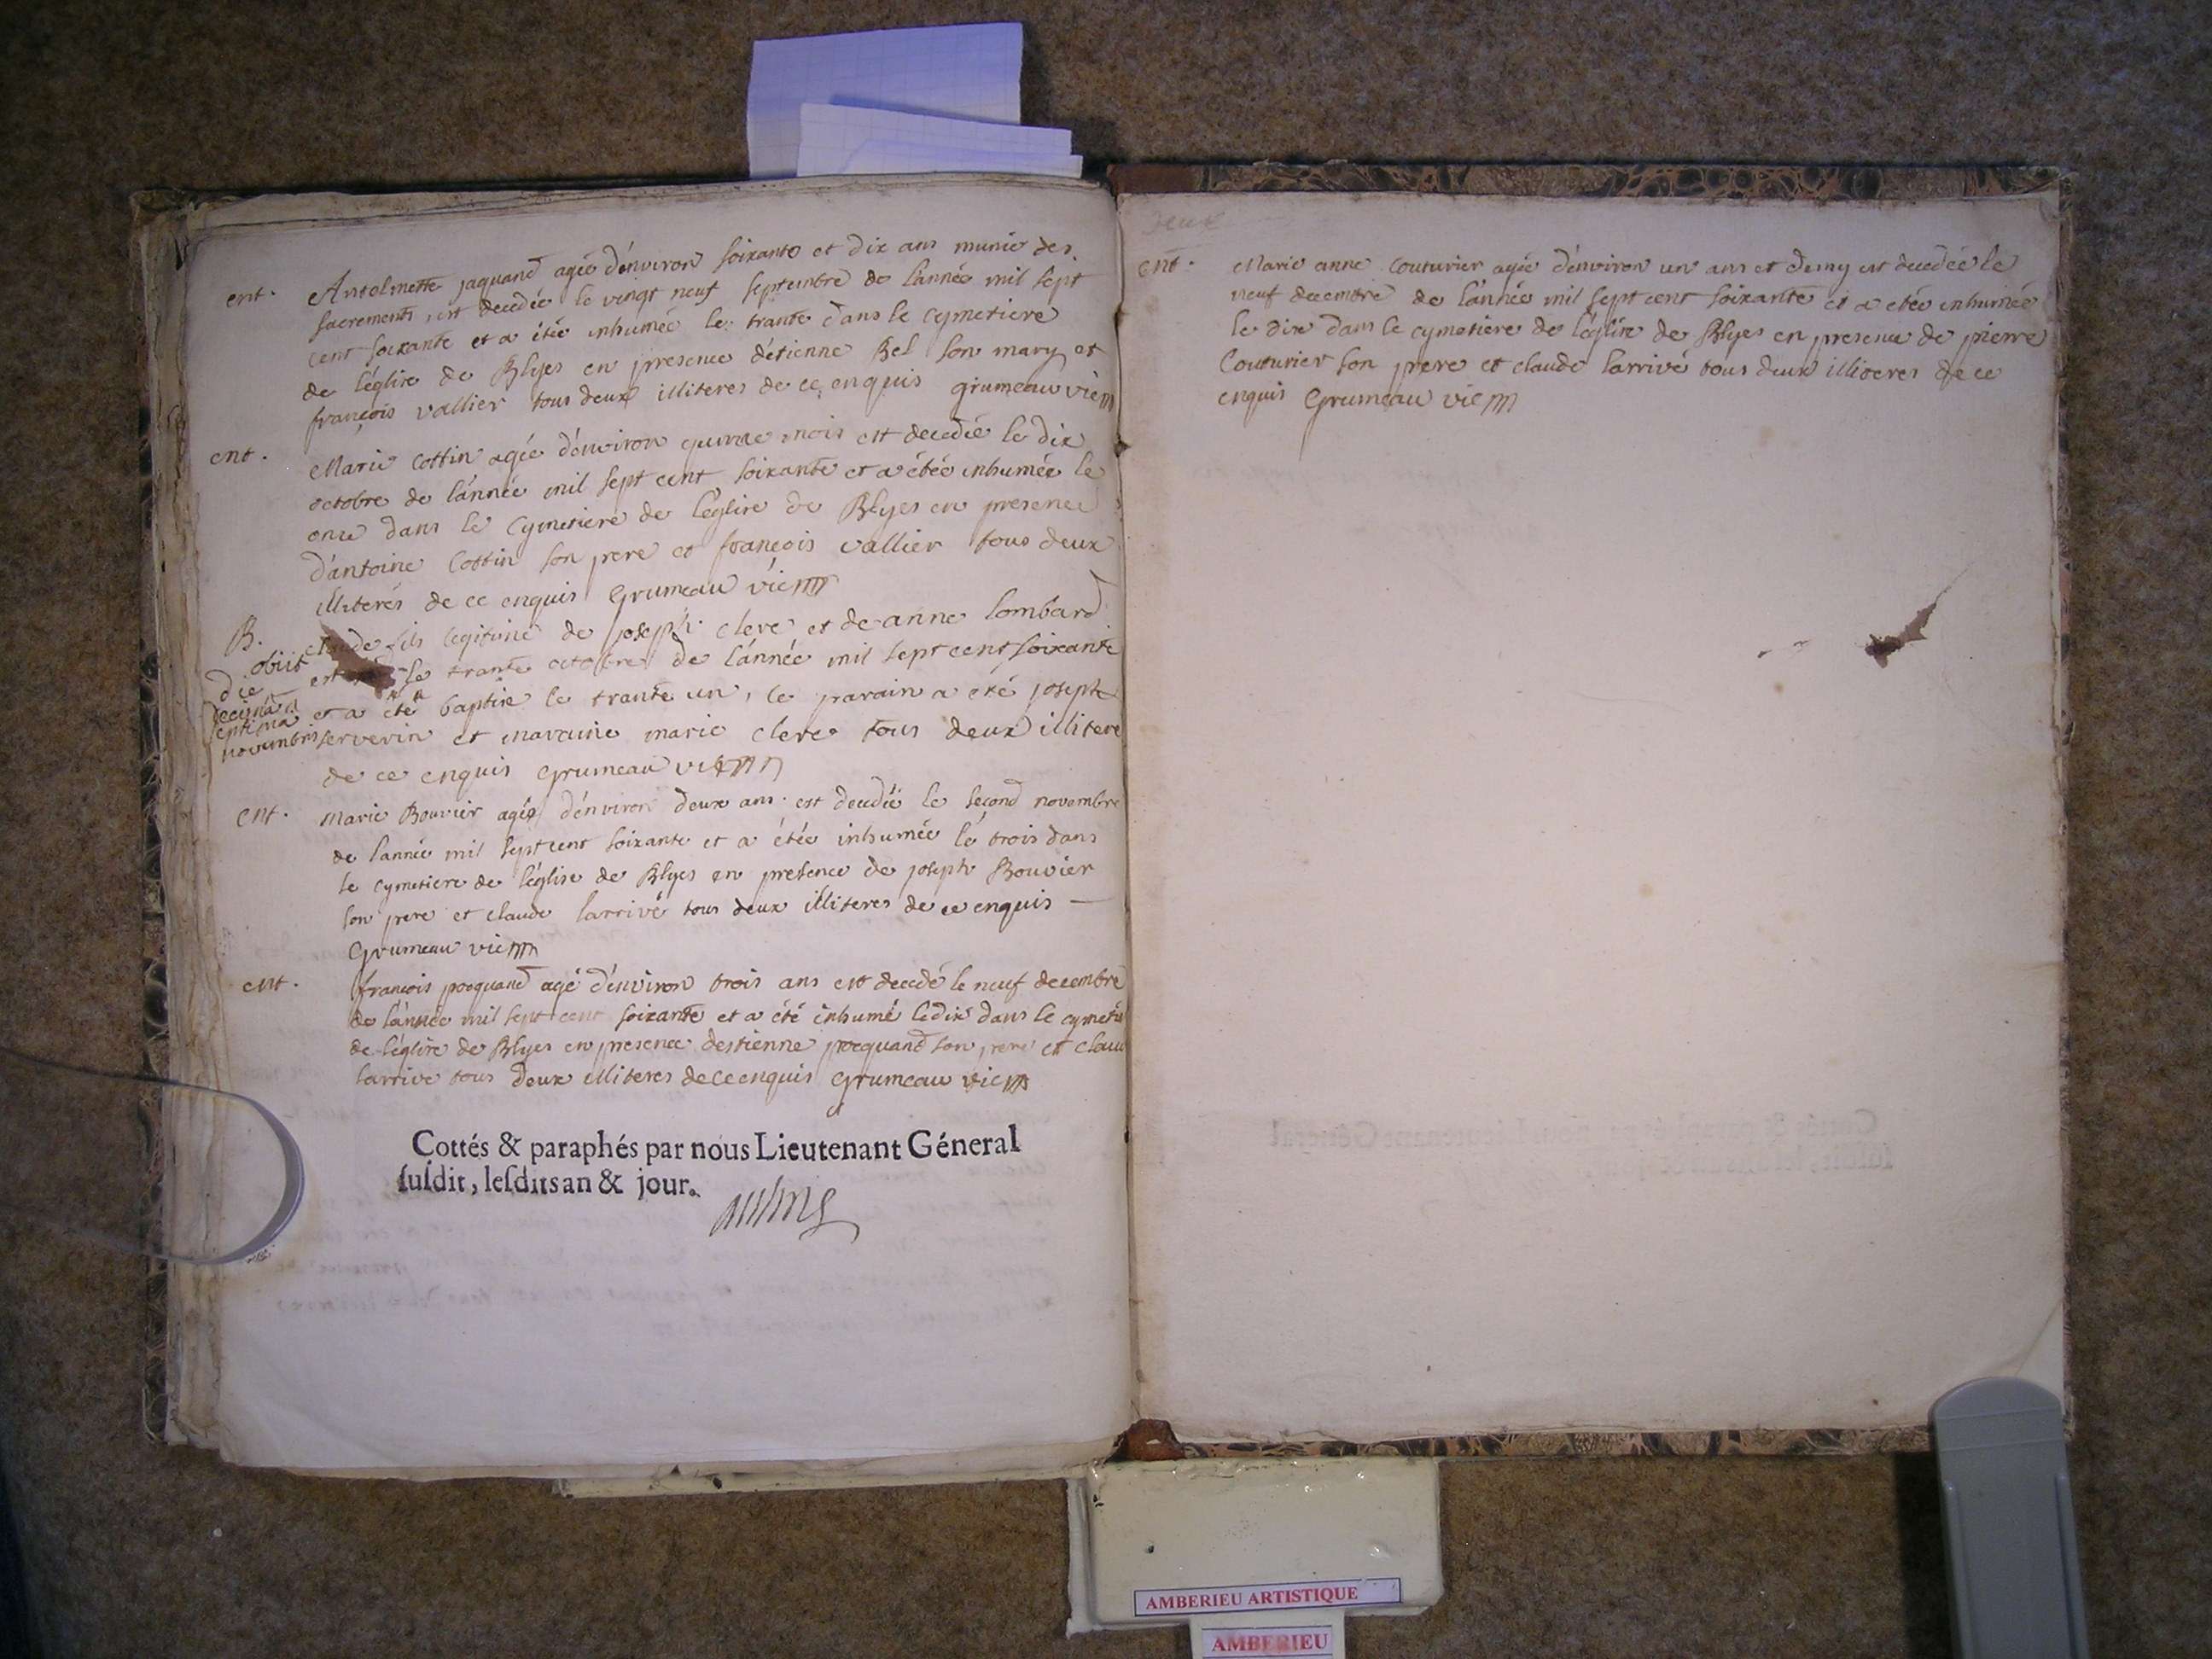 ent. Antelmette jaquand agée d'environ soixante et dix ans munie des
sacrements, est decedée le vingt neuf septembre de l'année mil sept
cent soixante et a étée inhumée le trante dans le cymetiere
de l'église de Blyes en presence d'etienne Bel son mary et
françois vallier tous deux illiteres de ce enquis grumeau vic
ent. Marie Cottin agée d'environ quinze mois est decedée le dix
octobre de l'année mil sept cent soixante et a étée inhumée le
onze dans le Cymetiere de l'église de Blyes en presence
d'antoine Cottin son pere et françois vallier tous deux
illiterés de ce enquis Grumeau vic
B. claude fils legitime de joseph clerc et de anne lombard
est le trante octobre de l'année mil sept cent soixante
et a été baptisé le trante un, le parain a été joseph
serverin et maraine marie clerc tous deux illitere
de ce enquis Grumeau vic
obiit
die
decima
septima
novembris
ent. Marie Bouvier agée d'environ deux ans est decedée le second novembre
de l'année mil sept cent soixante et a étée inhumée le trois dans
le cymetiere de l'église de Blyes en presence de joseph Bouvier
son pere et claude larrivé tous deux illiteres de ce enquis —
Grumeau vic
ent. françois pocquand agé d'environ trois ans est decedé le neuf decembre
de l'année mil sept cent soixante et a été inhumé le dix dans le cymeti
de l'église de Blyes en presence d'estienne pocquand son pere et clau
larrive tous deux illiteres de ce enquis Grumeau vic
Cottés & paraphés par nous Lieutenant Géneral
susdit, lesdits an & jour.
ent. Marie anne Couturier agée d'environ un ans et demy est decedée le
neuf decembre de l'année mil sept cent soixante et a étée inhumée
le dix dans le cymetiere de l'église de Blyes en presence de pierre
Couturier son pere et claude larrivé tous deux illiteres de ce
enquis Grumeau vic
AMBERIEU ARTISTIQUE
AMBERIEU